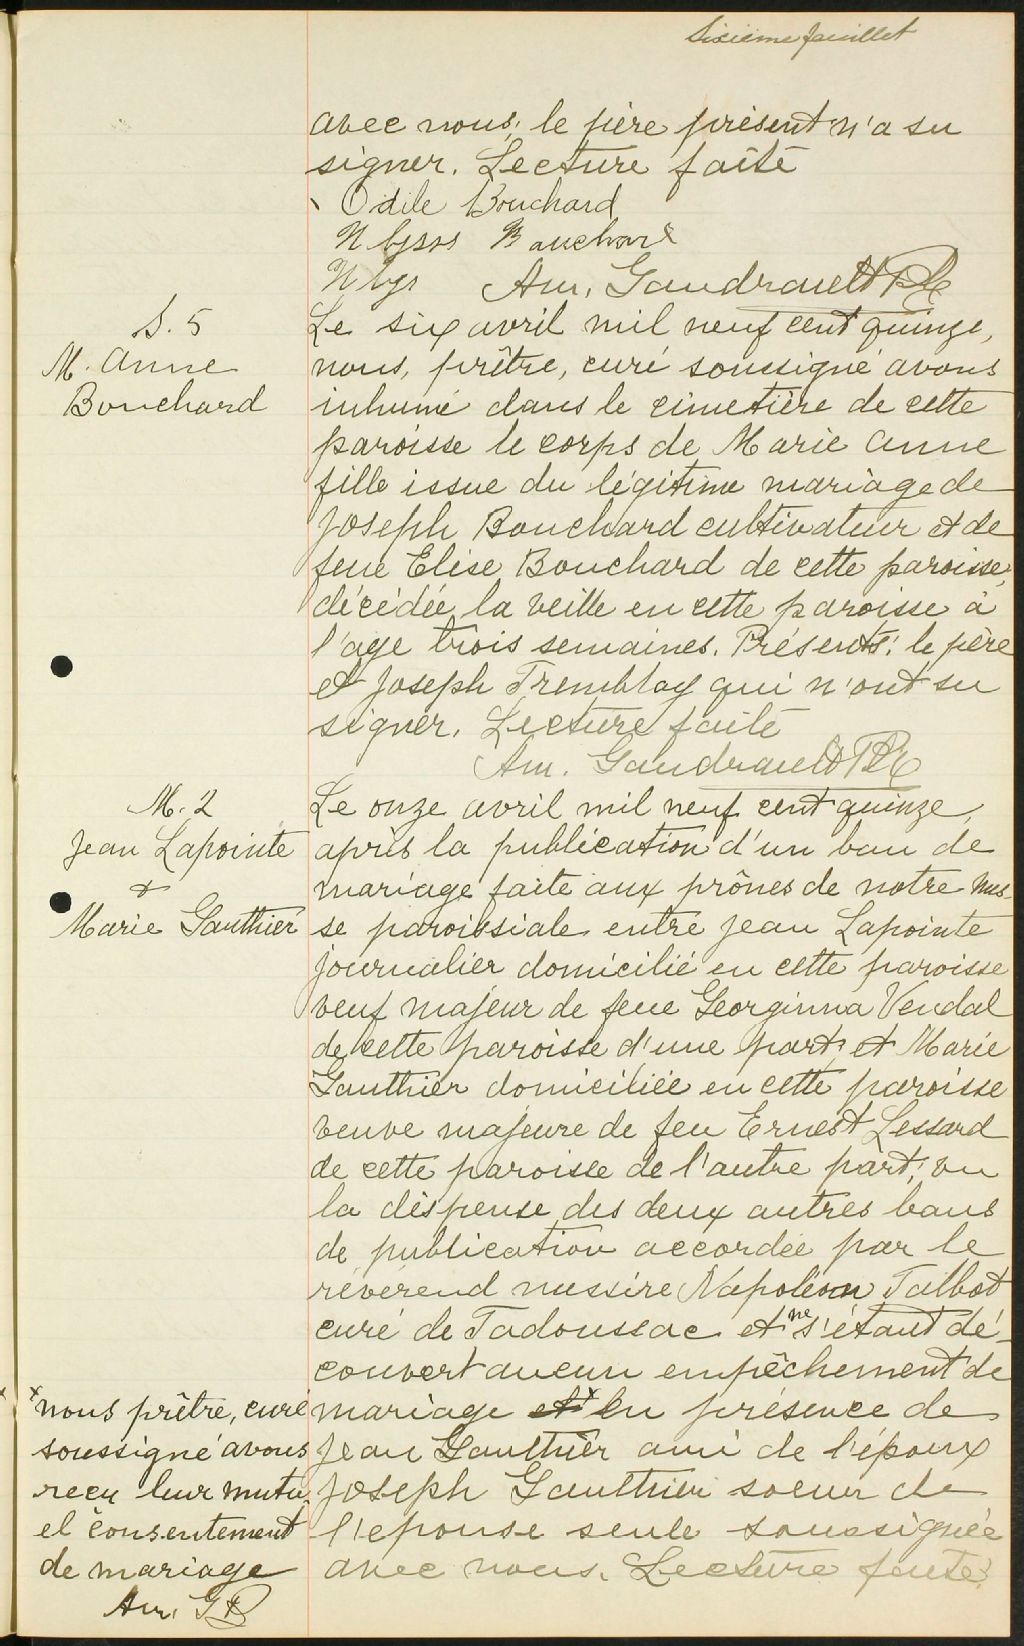 Sixième feuillet
avec nous, le père présent n'a su
signer. Lecture faite
Odile Bouchard
Bouchard
Am. Gaudrault Ptr
S. 5
M. Anne
Bouchard
Le six avril mil neuf cent quinze,
nous, prêtre, curé soussigné avons
inhumé dans le cimetière de cette
paroisse le corps de Marie Anne
fille issue du légitime mariage de
Joseph Bouchard cultivateur et de
feue Elise Bouchard de cette paroisse,
décédée la veille en cette paroisse à
l'age trois semaines. Présents: le père
et Joseph Tremblay qui n'ont su
signer. Lecture faite
Am. Gaudrault Ptr
M. 2
Jean Lapointe
&
Marie Gauthier
Le onze avril mil neuf cent quinze,
après la publication d'un ban de
mariage faite aux prônes de notre mes-
se paroissiale entre Jean Lapointe
journalier domicilié en cette paroisse
veuf majeur de feue Georginna Vendal
de cette paroisse d'une part, et Marie
Gauthier domiciliée en cette paroisse
veuve majeure de feu Ernest Lessard
de cette paroisse de l'autre part; vu
la dispense des deux autres bans
de publication accordée par le
révérend messire Napoléon Talbot
curé de Tadoussac et ne s'étant dé-
couvert aucun empêchement de
mariage et x en présence de
Jean Gauthier ami de l'époux
Joseph Gauthier soeur de
l'epouse seule soussignée
avec nous. Lecture faite.
x nous prêtre, curé
soussigné avons
reçu leur mutu
el consentement
de mariage
Am. G Ptr